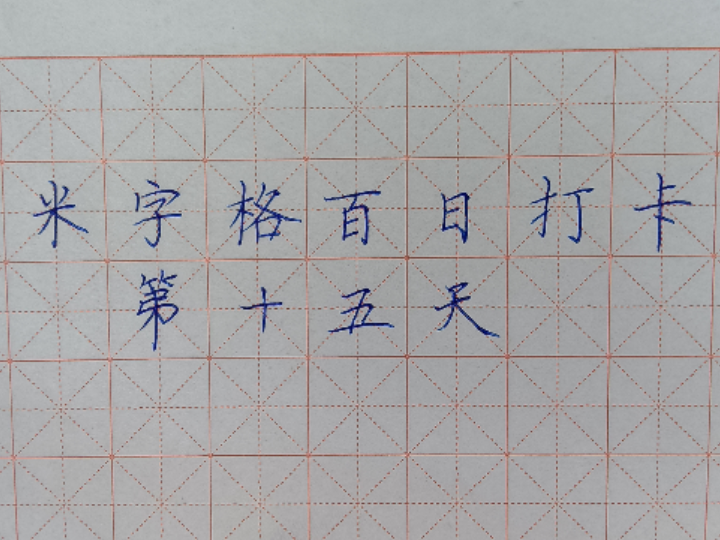 米字格百日打卡
第十五天